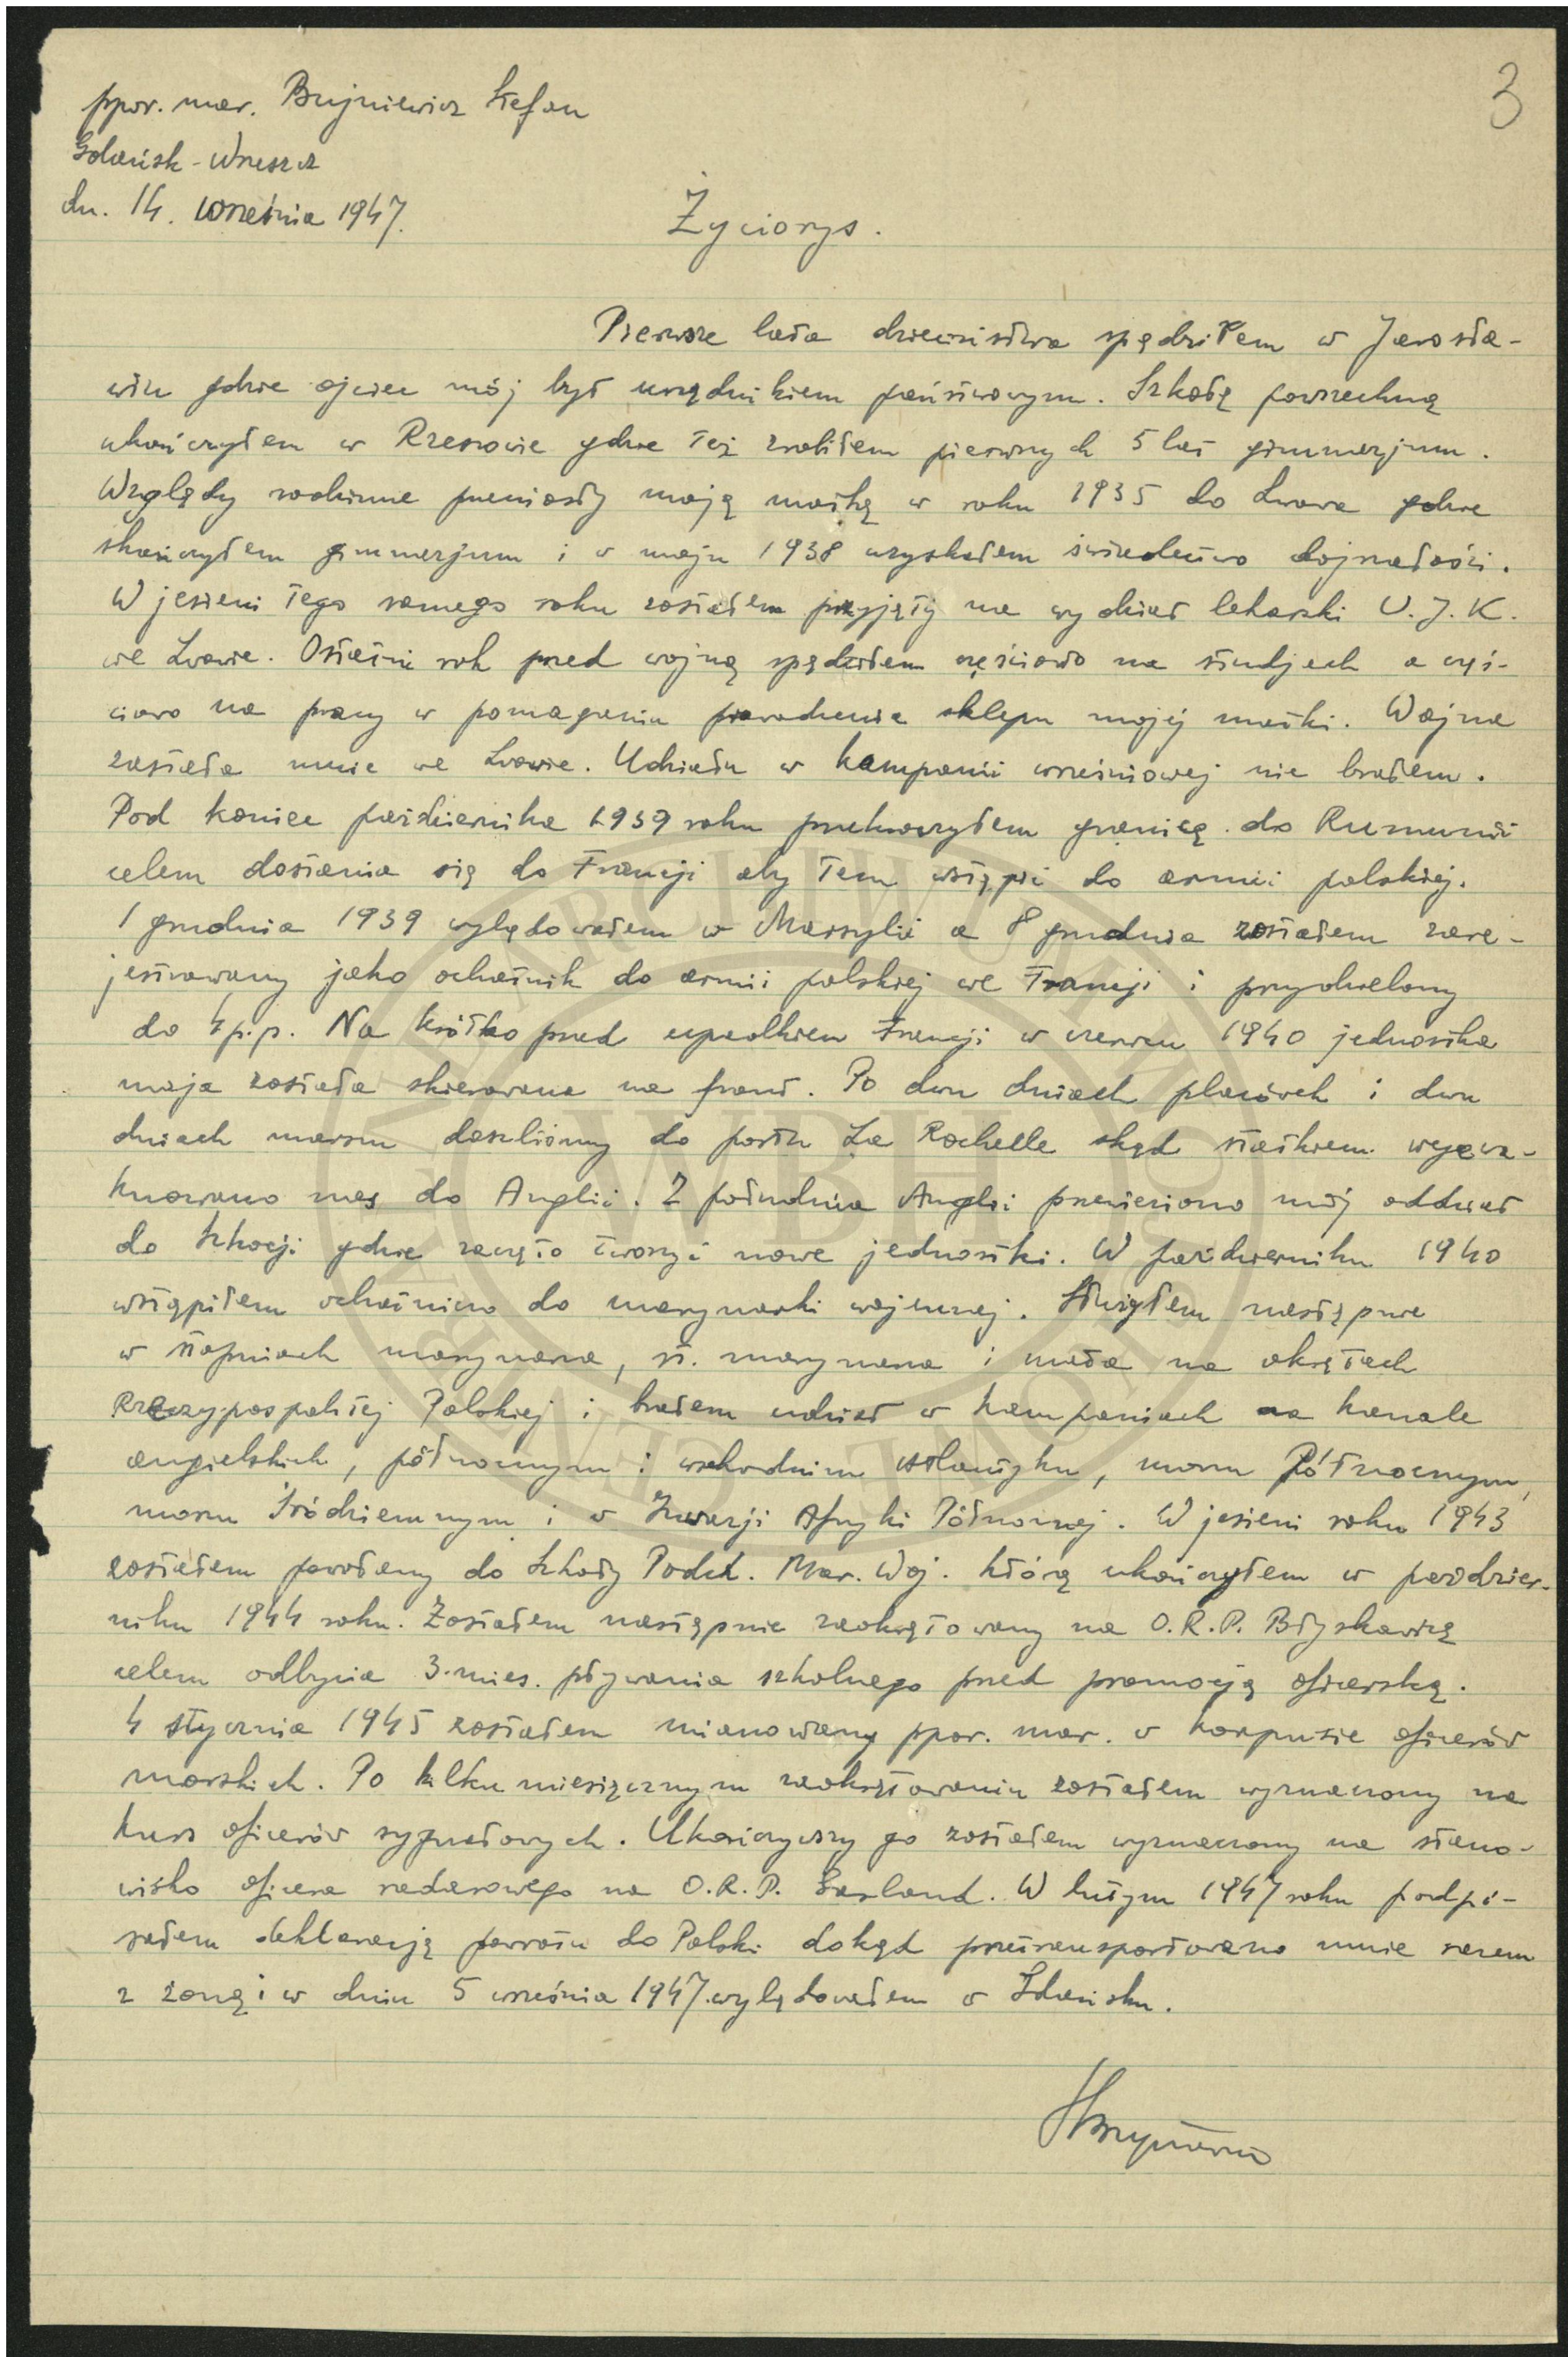 3
ppor. mar. Bujniewicz Stefan
Gdańsk-Wrzeszcz
dn. 14. września 1947.
Życiorys.
Pierwsze lata dzieciństwa spędziłem w Jarosła-
wiu gdzie ojciec mój był urzędnikiem państwowym. Szkołę powszechną
ukończyłem w Rzeszowie gdzie też zrobiłem pierwszych 5 lat gimnazjum.
Względy rodzinne przeniosły moją matkę w roku 1935 do Lwowa gdzie
skończyłem gimnazjum i w maju 1938 uzyskałem świadectwo dojrzałości.
W jesieni tego samego roku zostałem przyjęty na wydział lekarski U.J.K.
we Lwowie. Ostatni rok przed wojną spędziłem częściowo na studjach a częś-
ciowo na pracy w pomaganiu prowadzenia sklepu mojej matki. Wojna
zastała mnie we Lwowie. Udziału w kampanii wrześniowej nie brałem.
Pod koniec października 1939 roku przekroczyłem granicę do Rumunii
celem dostania się do Francji aby tam wstąpić do armii polskiej.
1 grudnia 1939 wylądowałem w Marsylii a 8 grudnia zostałem zare-
jestrowany jako ochotnik do armii polskiej we Francji i przydzielony
do 4 p.p. Na krótko przed upadkiem Francji w czerwcu 1940 jednostka
moja została skierowana na front. Po dwu dniach placówek i dwu
dniach marszu doszliśmy do portu La Rochelle skąd statkiem wyewa-
kuowano nas do Anglii. Z południa Anglii przewieziono mój oddział
do Szkocji gdzie zaczęto tworzyć nowe jednostki. W październiku 1940
wstąpiłem ochotniczo do marynarki wojennej. Służyłem następnie
w stopniach marynarza, st. marynarza i mata na okrętach
Rzeczypospolitej Polskiej i brałem udział w kampaniach na kanale
angielskich, północnym i wschodnim Atlantyku, morzu Północnym,
morzu Śródziemnym i w Inwazji Afryki Północnej. W jesieni roku 1943
zostałem powołany do Szkoły Podch. Mar. Woj. którą ukończyłem w paździer-
niku 1944 roku. Zostałem następnie zaokrętowany na O.R.P. Błyskawicę
celem odbycia 3-mies. pływania szkolnego przed promocją oficerską.
4 stycznia 1945 zostałem mianowany ppor. mar. w korpusie oficerów
morskich. Po kilku miesięcznym zaokrętowaniu zostałem wyznaczony na
kurs oficerów sygnałowych. Ukończywszy go zostałem wyznaczony na stano-
wisko oficera radarowego na O.R.P. Garland. W lutym 1947 roku podpi-
sałem deklarację powrotu do Polski dokąd przetransportowano mnie razem
z żoną i w dniu 5 września 1947 wylądowałem w Gdańsku.